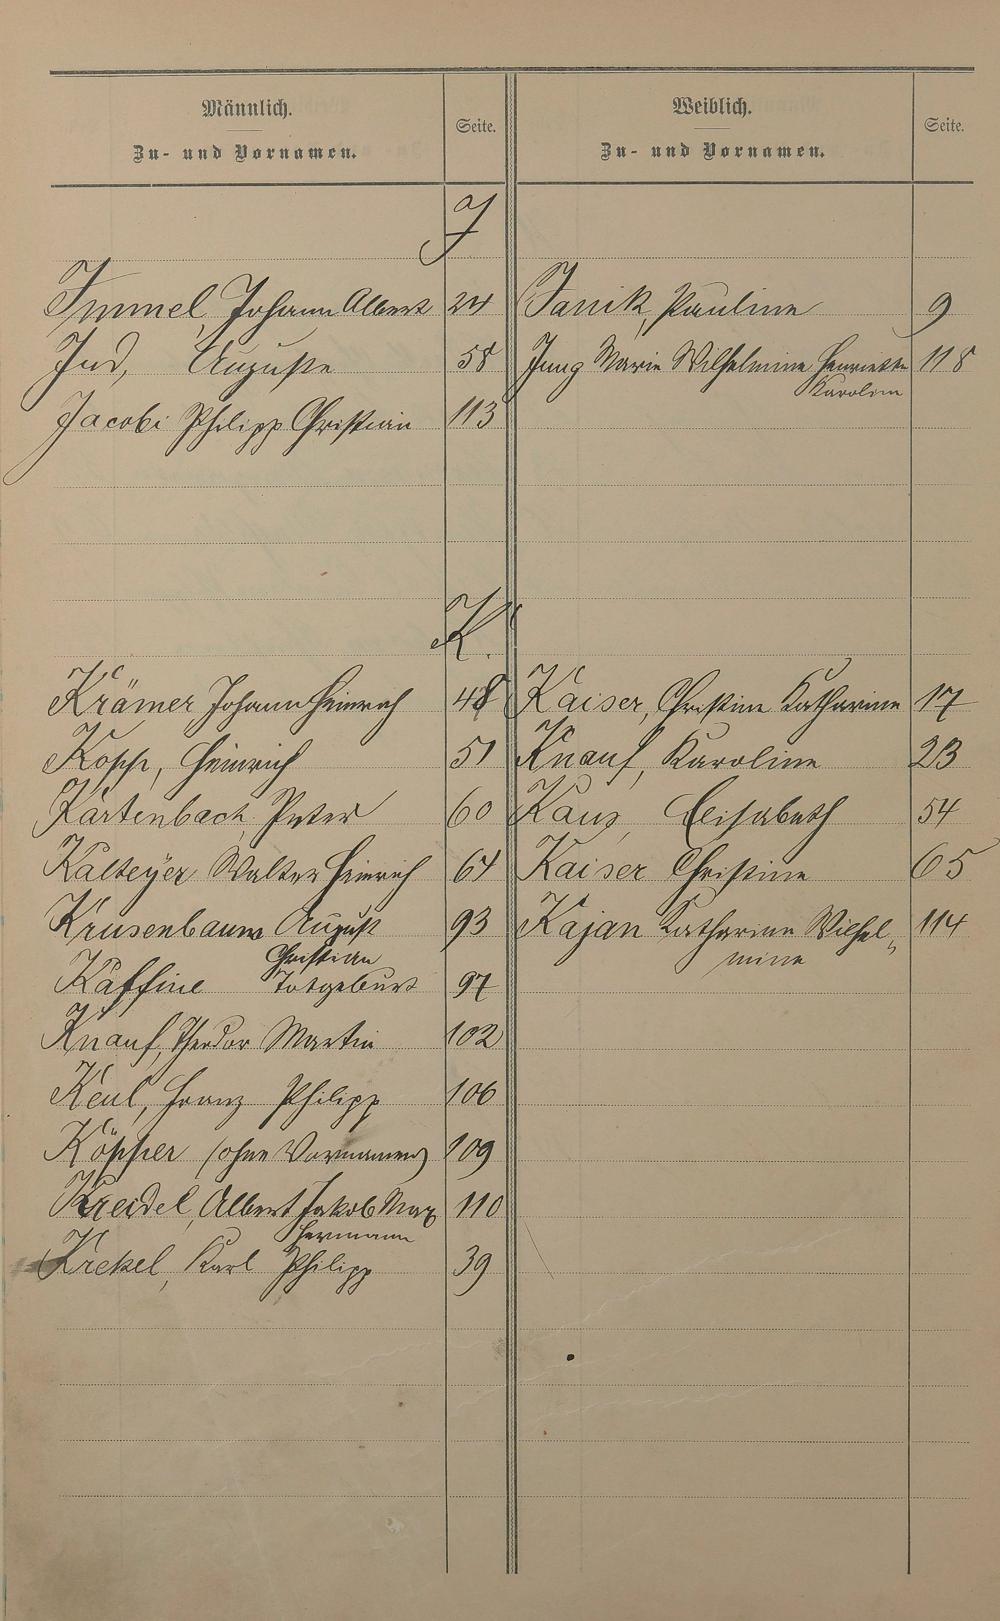 Männlich.
Zu- und Vornamen.
Seite.
Weiblich.
Zu- und Vornamen.
Seite.
J
Immel, Johann Albert 24 Janik, Pauline 9
Jud, Auguste 58 Jung Marie Wilhelmine Henriette 118
Karoline
Jacobi Philipp Christian 113
K.
Krämer, Johann Heinrich 48 Kaiser, Christine Katharine 17
Kopp, Heinrich 51 Knauf, Karoline 23
Kartenbach, Peter 60 Kaus, Elisabeth 54
Kalteyer Walter Heinrich 64 Kaiser Christine 65
Krusenbaum August 93 Kajan Katharine Wilhel-, 114
Christian mine
Kaffine Totgeburt 97
Knauf, Theodor Martin 102
Keul, Franz Philipp 106
Köpper (ohne Vornamen) 109
Kreidel, Albert Jakob Max 110
Hermann
Krekel, Karl Philipp 39